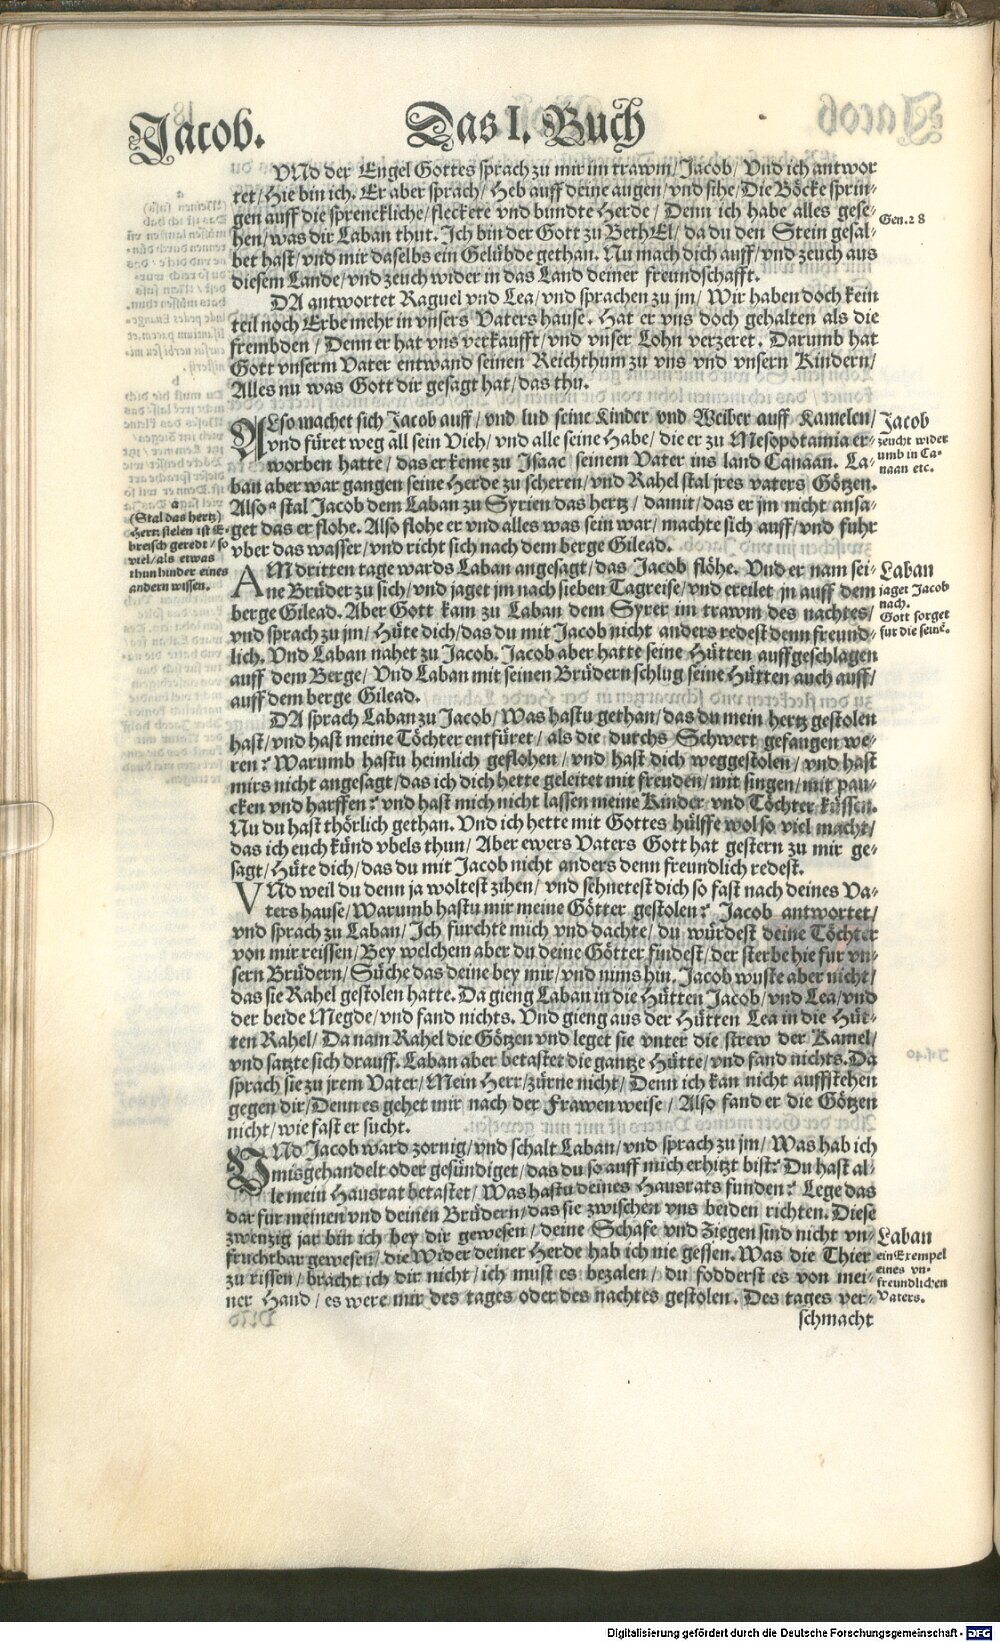 Jacob.
Das I. Buch
VNd der Engel Gottes sprach zu mir im trawm/Jacob/Vnd ich antwor
tet/Hie bin ich. Er aber sprach/Heb auff deine augen/vnd sihe/Die Böcke sprin-
gen auff die sprenckliche/fleckete vnd bundte Herde/Denn ich habe alles gese-
hen/was dir Laban thut. Ich bin der Gott zu BethEl/da du den Stein gesal-
bet hast/vnd mir daselbs ein Gelübde gethan. Nu mach dich auff/vnd zeuch aus
diesem Lande/vnd zeuch wider in das Land deiner freundschafft.
Gen.28
DA antwortet Raguel vnd Lea/vnd sprachen zu jm/Wir haben doch kein
teil noch Erbe mehr in vnsers Vaters hause. Hat er vns doch gehalten als die
frembden/Denn er hat vns verkaufft/vnd vnser Lohn verzeret. Darumb hat
Gott vnserm Vater entwand seinen Reichthum zu vns vnd vnsern Kindern/
Alles nu was Gott dir gesagt hat/das thu.
ALso machet sich Jacob auff/vnd lud seine Kinder vnd Weiber auff Kamelen/
vnd füret weg all sein Vieh/vnd alle seine Habe/die er zu Mesopotamia er-
worben hatte/das er keme zu Isaac seinem Vater ins land Canaan. La-
ban aber war gangen seine Herde zu scheren/vnd Rahel stal jres vaters Götzen.
Also a stal Jacob dem Laban zu Syrien das hertz/damit/das er jm nicht ansa-
get das er flohe. Also flohe er vnd alles was sein war/machte sich auff/vnd fuhr
vber das wasser/vnd richt sich nach dem berge Gilead.
Jacob
zeucht wider
umb in Ca-
naan etc.
a
(Stal das hertz)
Hertz stelen ist E-
breisch geredt/so
viel/als etwas
thun hinder eines
andern wissen.
AM dritten tage wards Laban angesagt/das Jacob flöhe. Vnd er nam sei-
ne Brüder zu sich/vnd jaget jm nach sieben Tagreise/vnd ereilet jn auff dem
berge Gilead. Aber Gott kam zu Laban dem Syrer im trawm des nachtes/
vnd sprach zu jm/Hüte dich/das du mit Jacob nicht anders redest denn freund-
lich. Vnd Laban nahet zu Jacob. Jacob aber hatte seine Hütten auffgeschlagen
auff dem Berge/Vnd Laban mit seinen Brüdern schlug seine Hütten auch auff/
auff dem berge Gilead.
Laban
jaget Jacob
nach.
Gott sorget
fur die seine.
DA sprach Laban zu Jacob/Was hastu gethan/das du mein hertz gestolen
hast/vnd hast meine Töchter entfüret/als die durchs Schwert gefangen we-
ren? Warumb hastu heimlich geflohen/vnd hast dich weggestolen/vnd hast
mirs nicht angesagt/das ich dich hette geleitet mit freuden/mit singen/mit pau-
cken vnd harffen? vnd hast mich nicht lassen meine Kinder vnd Töchter küssen.
Nu du hast thörlich gethan. Vnd ich hette mit Gottes hülffe wol so viel macht/
das ich euch künd vbels thun/Aber ewers Vaters Gott hat gestern zu mir ge-
sagt/Hüte dich/das du mit Jacob nicht anders denn freundlich redest.
VNd weil du denn ja woltest zihen/vnd sehnetest dich so fast nach deines Va-
ters hause/Warumb hastu mir meine Götter gestolen? Jacob antwortet/
vnd sprach zu Laban/Ich furchte mich vnd dachte/du würdest deine Töchter
von mir reissen/Bey welchem aber du deine Götter findest/der sterbe hie fur vn-
sern Brüdern/Süche das deine bey mir/vnd nims hin. Jacob wuste aber nicht/
das sie Rahel gestolen hatte. Da gieng Laban in die Hütten Jacob/vnd Lea/vnd
der beide Megde/vnd fand nichts. Vnd gieng aus der Hütten Lea in die Hüt-
ten Rahel/Da nam Rahel die Götzen vnd leget sie vnter die strew der Kamel/
vnd satzte sich drauff. Laban aber betastet die gantze Hütte/vnd fand nichts. Da
sprach sie zu jrem Vater/Mein Herr/zürne nicht/Denn ich kan nicht auffstehen
gegen dir/Denn es gehet mir nach der Frawen weise/Also fand er die Götzen
nicht/wie fast er sucht.
VNd Jacob ward zornig/vnd schalt Laban/vnd sprach zu jm/Was hab ich
misgehandelt oder gesündiget/das du so auff mich erhitzt bist? Du hast al-
le mein Hausrat betastet/Was hastu deines Hausrats funden? Lege das
dar fur meinen vnd deinen Brüdern/das sie zwischen vns beiden richten. Diese
zwenzig jar bin ich bey dir gewesen/deine Schafe vnd Ziegen sind nicht vn-
fruchtbar gewesen/die Wider deiner Herde hab ich nie gessen. Was die Thier
zu rissen/bracht ich dir nicht/ich must es bezalen/du fodderst es von mei-
ner Hand/es were mir des tages oder des nachtes gestolen. Des tages ver-
schmacht
Laban
ein Exempel
eines vn-
freundlichen
Vaters.
Digitalisierung gefördert durch die Deutsche Forschungsgemeinschaft - DFG